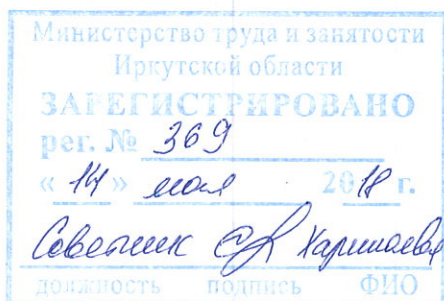 Министерство труда и занятости
Иркутской области
ЗАРЕГИСТРИРОВАНО
рег. № 369
« 14 » мая 2018 г.
Советник
должность подпись ФИО